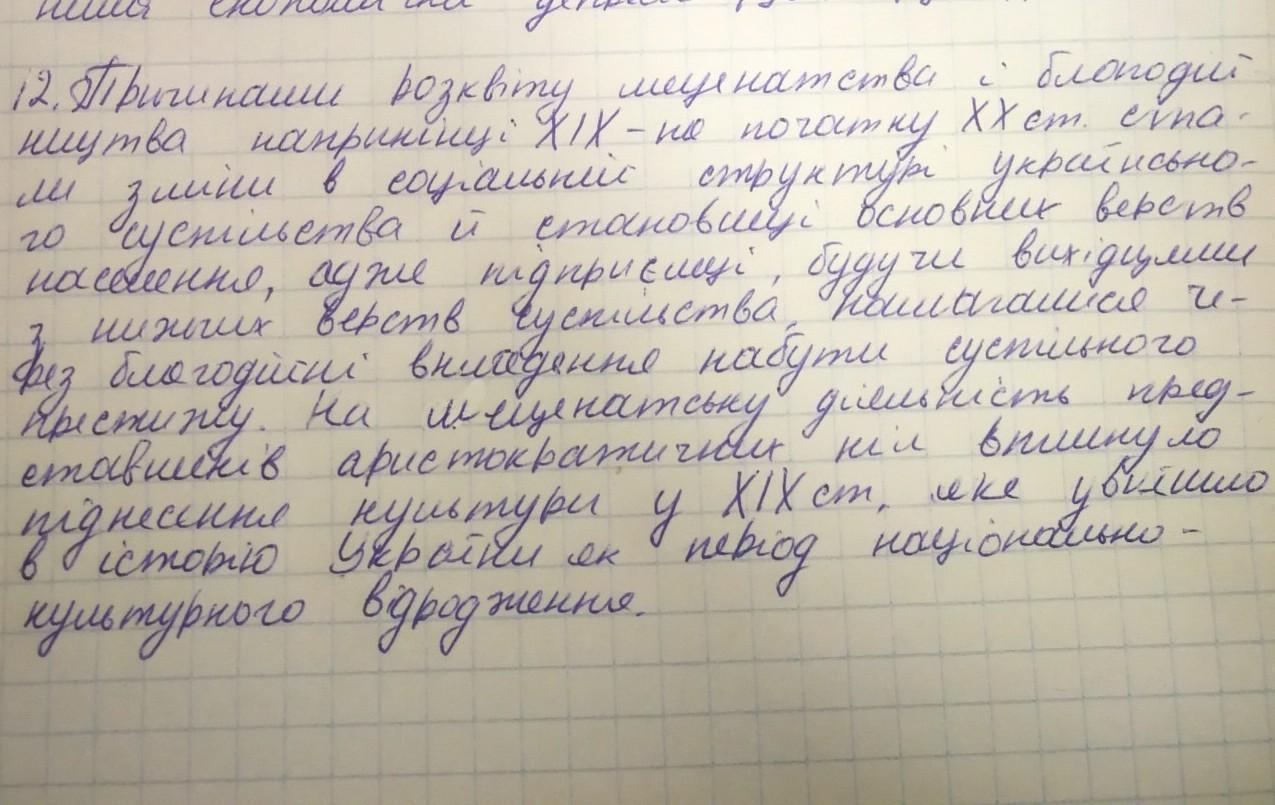 економічна
12. Причинами розквіту меценатства і благодій
ництва наприкінці XIX - на початку XX ст. ста-
ли зміни в соціальній структурі українсько-
го суспільства й становищі основних верств
населення, адже підприємці, будучи вихідцями
з нижчих верств суспільства, намагалися че-
рез благодійні вкладення набути суспільного
престижу. На меценатську діяльність пред-
ставників аристократичних кіл вплинуло
піднесення культури у XIX ст, яке увійшло
в історію України як період національно-
культурного відродження.